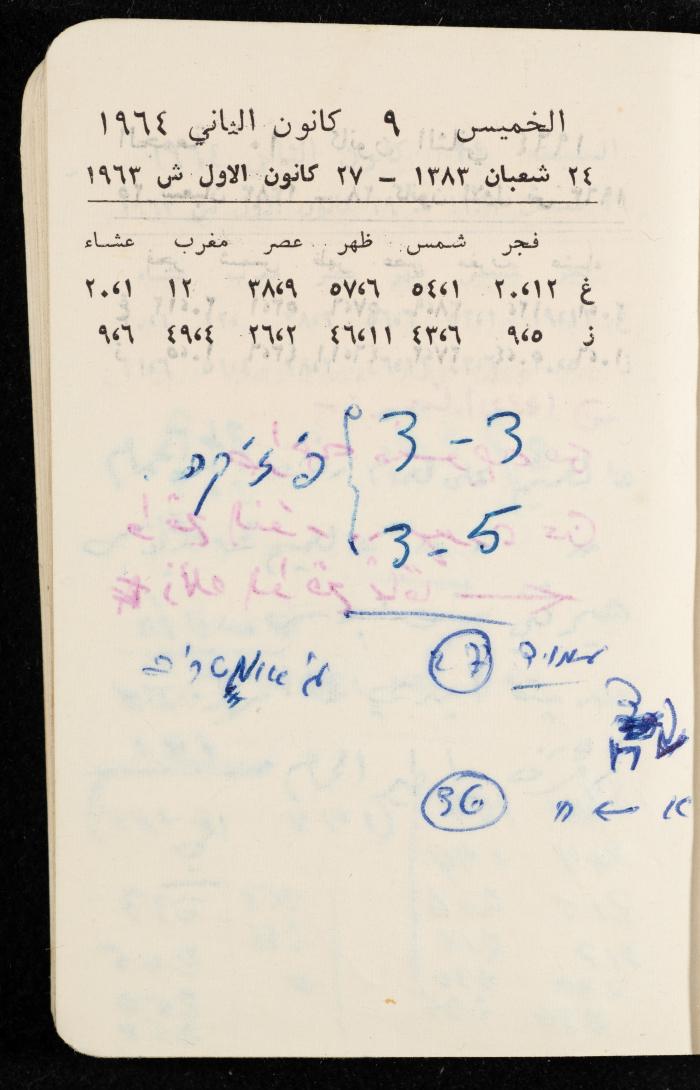 الخميس ٩ كانون الثاني ١٩٦٤
٢٤ شعبان ١٣٨٣ – ٢٧ كانون الاول ش ١٩٦٣
فجر شمس ظهر عصر مغرب عشاء
غ ٢٠،١٢ ٥٤،١ ٥٧،٦ ٣٨،٩ ١٢ ٢٠،١
ز ٩،٥ ٤٣،٦ ٤٦،١١ ٢٦،٢ ٤٩،٤ ٩،٦
3 - 3
פיזיקה
3 - 5
עמוד 27 גיאומטריה
א ← ח 36